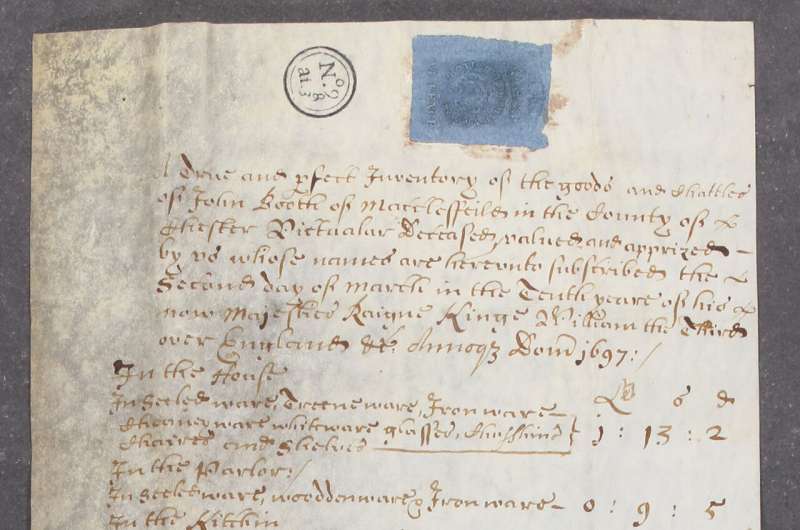 No. 8
at 3
A True and pfect Inventory of the goods and Chattles
of John Booth of Macclesfeild in the County of
Chester Victualar Deceased, valued and apprized
by vs whose names are herevnto subscribed the
Second day of March in the Tenth yeare of his
now Majesties Raigne Kinge William the Third
over England &c. Annoqz Dom 1697:/
In the House
In Seeled ware, Treene ware, Iron ware
ware whitware glasses,
Chaires and Shelves 1 : 13 : 2
In the Parlor:/
In Seeled ware, wooddenware & Iron ware 0 : 9 : 5
In the Kitchin